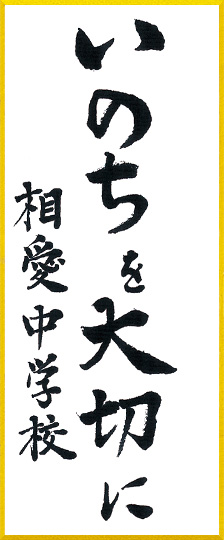 いのちを大切に
相愛中学校